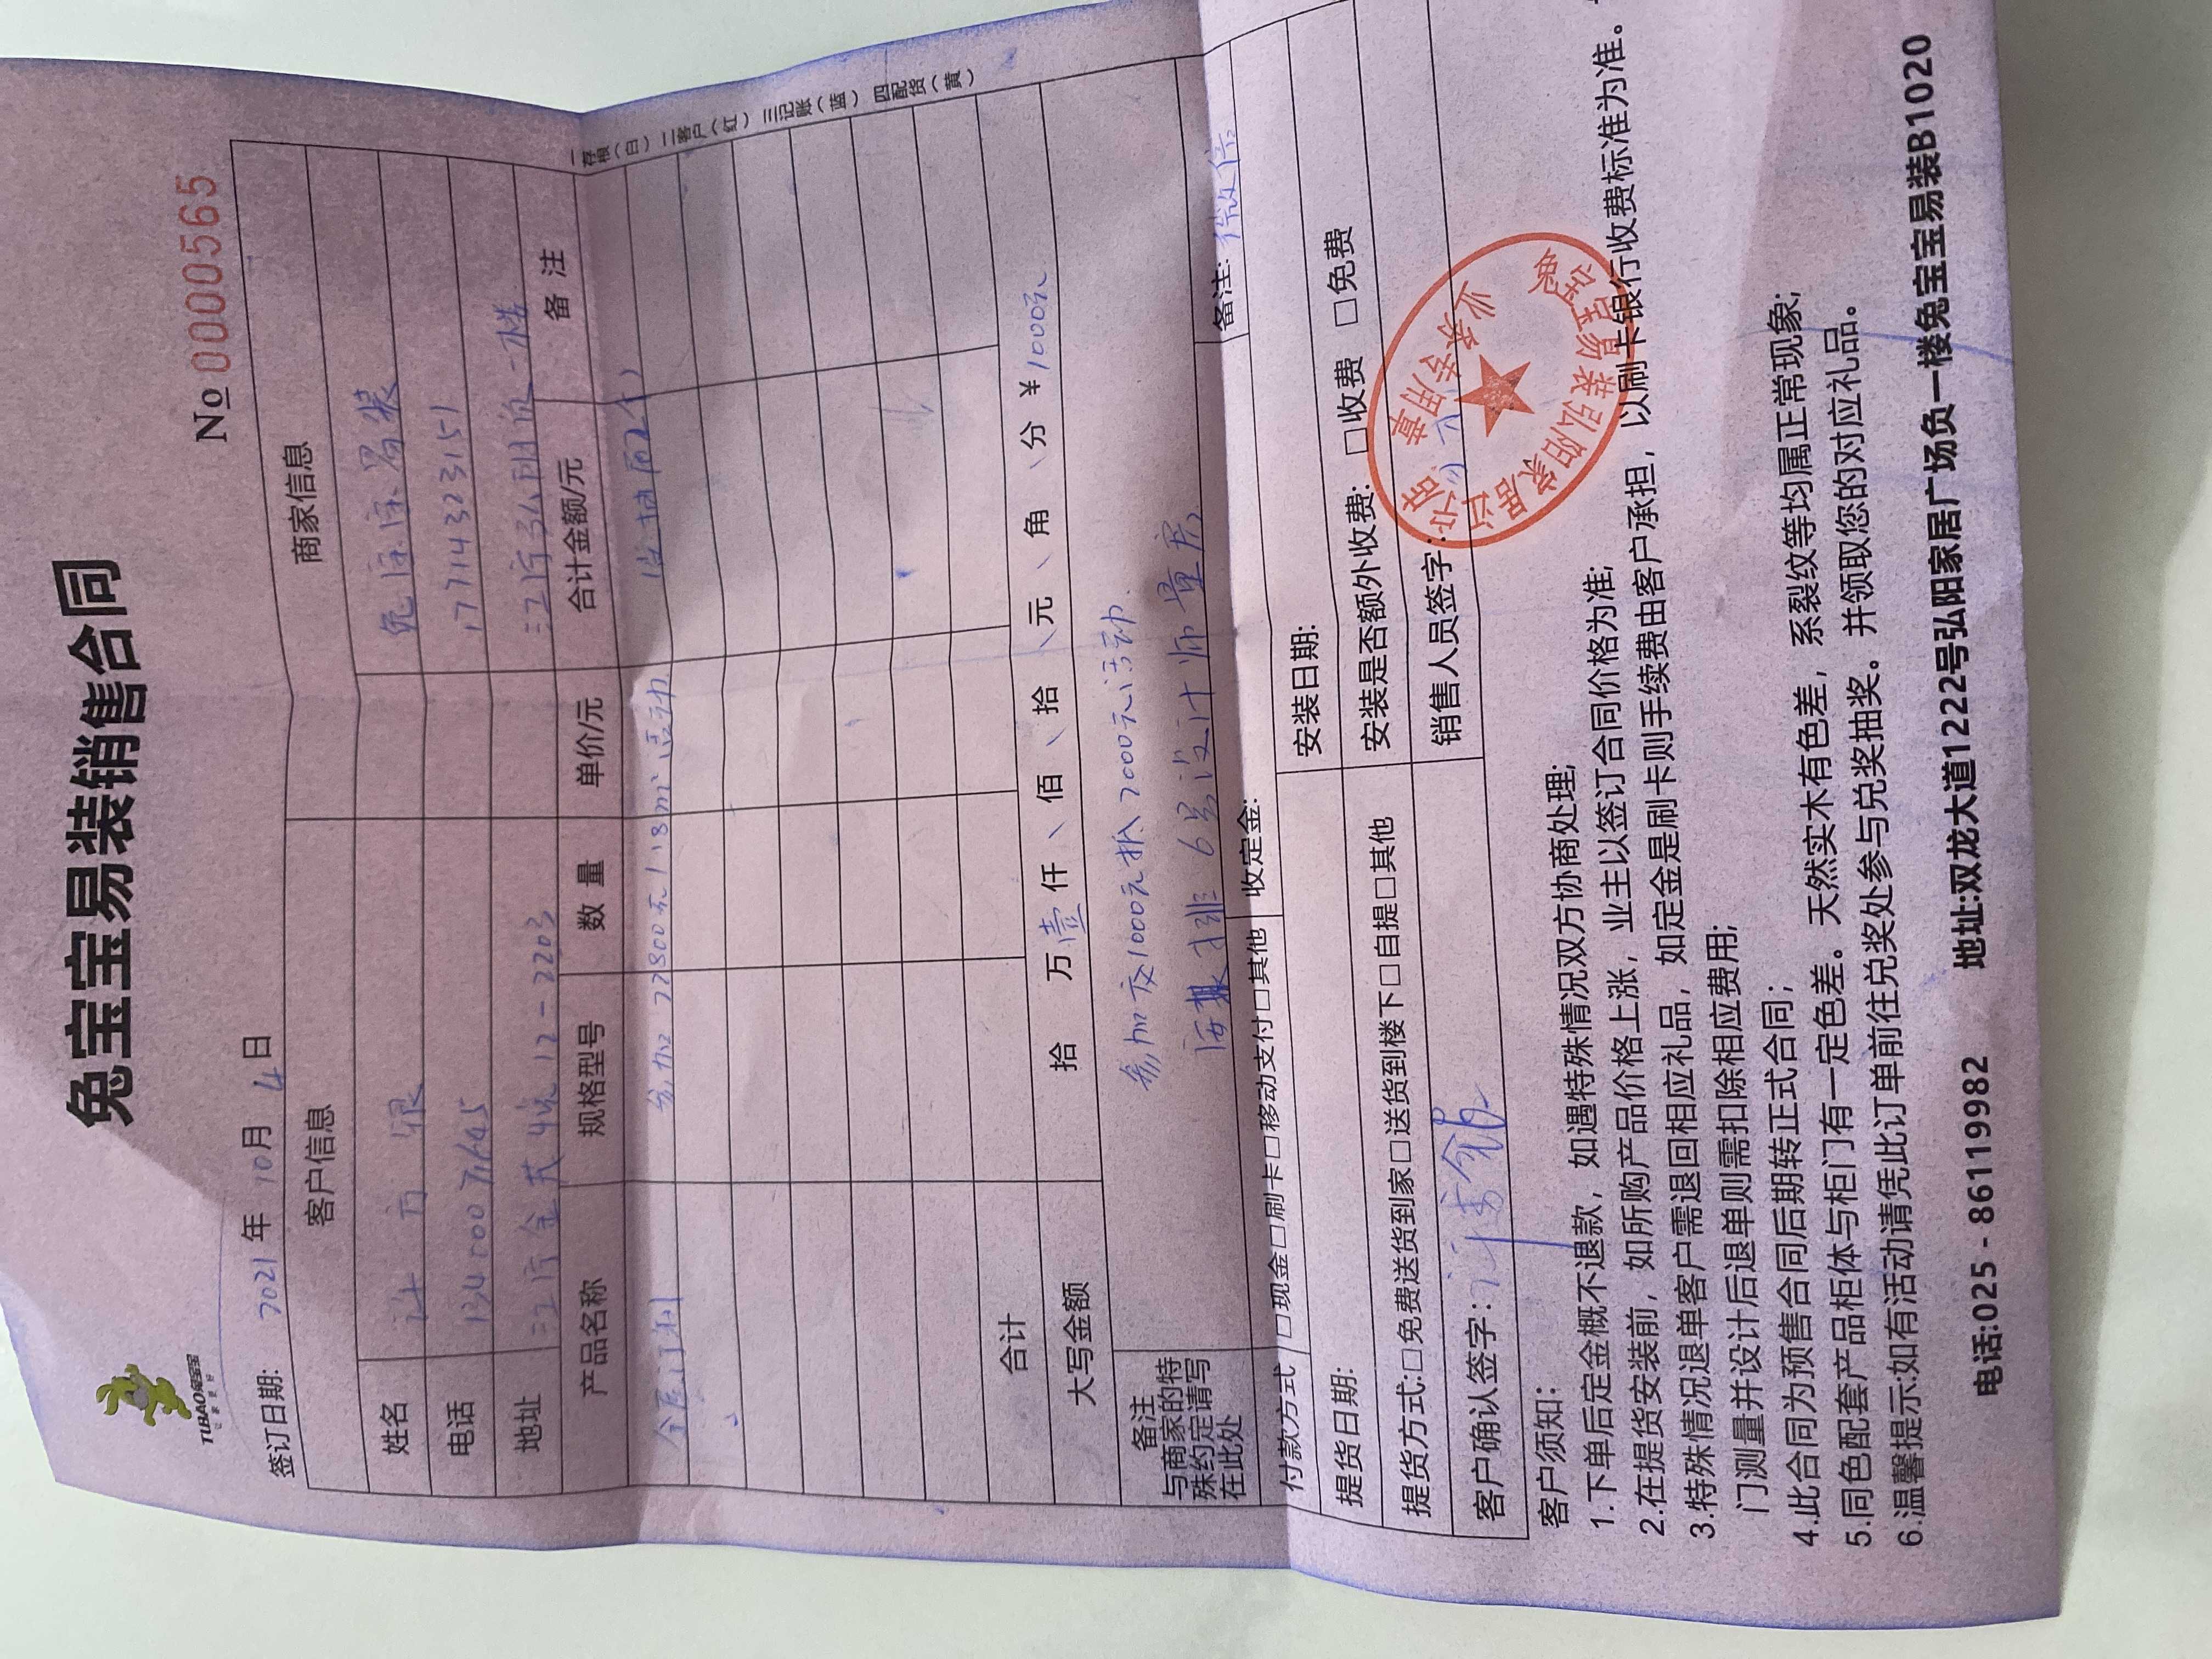 TUBAO兔宝宝
兔宝宝易装销售合同
No 0000565
签订日期: 2021 年 10 月 4 日
客户信息 商家信息
姓名 兔宝宝易装
电话 17714323151
地址 12-2203
产品名称 规格型号 数量 单价/元 合计金额/元 备注
全屋定制 参加22800元/18m²活动
合计
大写金额 拾 万 壹 仟 佰 拾 元 角 分 ¥ 1000元
备注
与商家的特
殊约定请写
在此处
参加交1000元抵2000元活动
安排6号设计师量房
付款方式 □现金□刷卡□移动支付□其他 收定金: 备注: 微信
提货日期: 安装日期:
提货方式:□免费送货到家□送货到楼下□自提□其他 安装是否额外收费: □收费 □免费
客户确认签字: 销售人员签字:
兔宝宝易装弘阳家居
业务专用章
一存根(白) 二客户(红) 三记账(蓝) 四配货(黄)
客户须知:
1.下单后定金概不退款，如遇特殊情况双方协商处理;
2.在提货安装前，如所购产品价格上涨，业主以签订合同价格为准;
3.特殊情况退单客户需退回相应礼品，如定金是刷卡则手续费由客户承担，以刷卡银行收费标准为准。
门测量并设计后退单则需扣除相应费用;
4.此合同为预售合同后期转正式合同;
5.同色配套产品柜体与柜门有一定色差。天然实木有色差，系裂纹等均属正常现象;
6.温馨提示:如有活动请凭此订单前往兑奖处参与兑奖抽奖。并领取您的对应礼品。
电话:025-86119982 地址:双龙大道1222号弘阳家居广场负一楼兔宝宝易装B1020